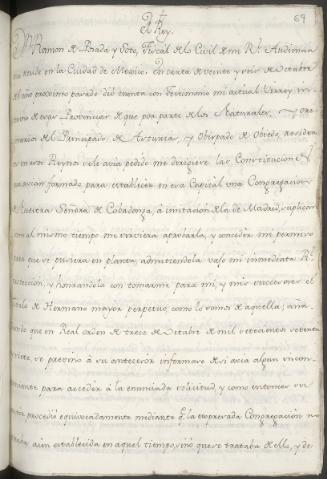 69
El Rey.
Dn Ramon de Posada y Soto, Fiscal de lo Civil de mi Rl. Audiencia
que reside en la Ciudad de Mexico. En carta de veinte y seis de Octubre
del año proximo pasado dió cuenta con Testimonio mi actual Virrey
de esas Provincias de que por parte de los Naturales, y
del Principado de Asturias, y Obispado de Oviedo, residentes
en esos Reynos se le avia pedido me dirigiese las Constituciones q.
avian formado para establecer en esa Capital una Congregacion
de Nuestra Señora de Cobadonga, á imitacion de la de Madrid, suplican
al mismo tiempo me sirviera aprobarla, y conceder mi permiso
para que se pusiera en planta, admitiendola vajo mi inmediata Rl.
proteccion, y honrandola con tomarme para mi, y mis succesores el
titulo de Hermano mayor perpetuo, como lo somos de aquella; aña
diendo que en Real orden de trece de Octubre de mil setecientos setenta
y siete se previno á su antecesor informase si avia algun incon
veniente para acceder á la enunciada solicitud, y como entonces
procedió equivocadamente mediante q. la expresada Congregacion no
estaba aún establecida en aquel tiempo, sino que se trataba de ello, y de